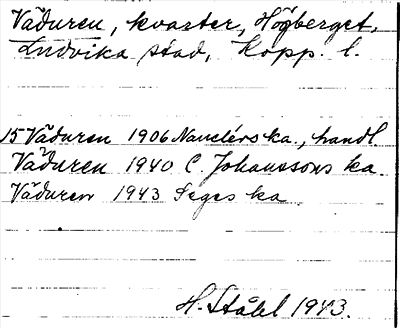 Väduren, kvarter, Högberget,
Ludvika stad, Kopp. l.
15 Väduren 1906 Nauclérs ka., handl
Väduren 1940 C. Johanssons ka.
Väduren 1943 Seges ka
H. Ståhl 1943.